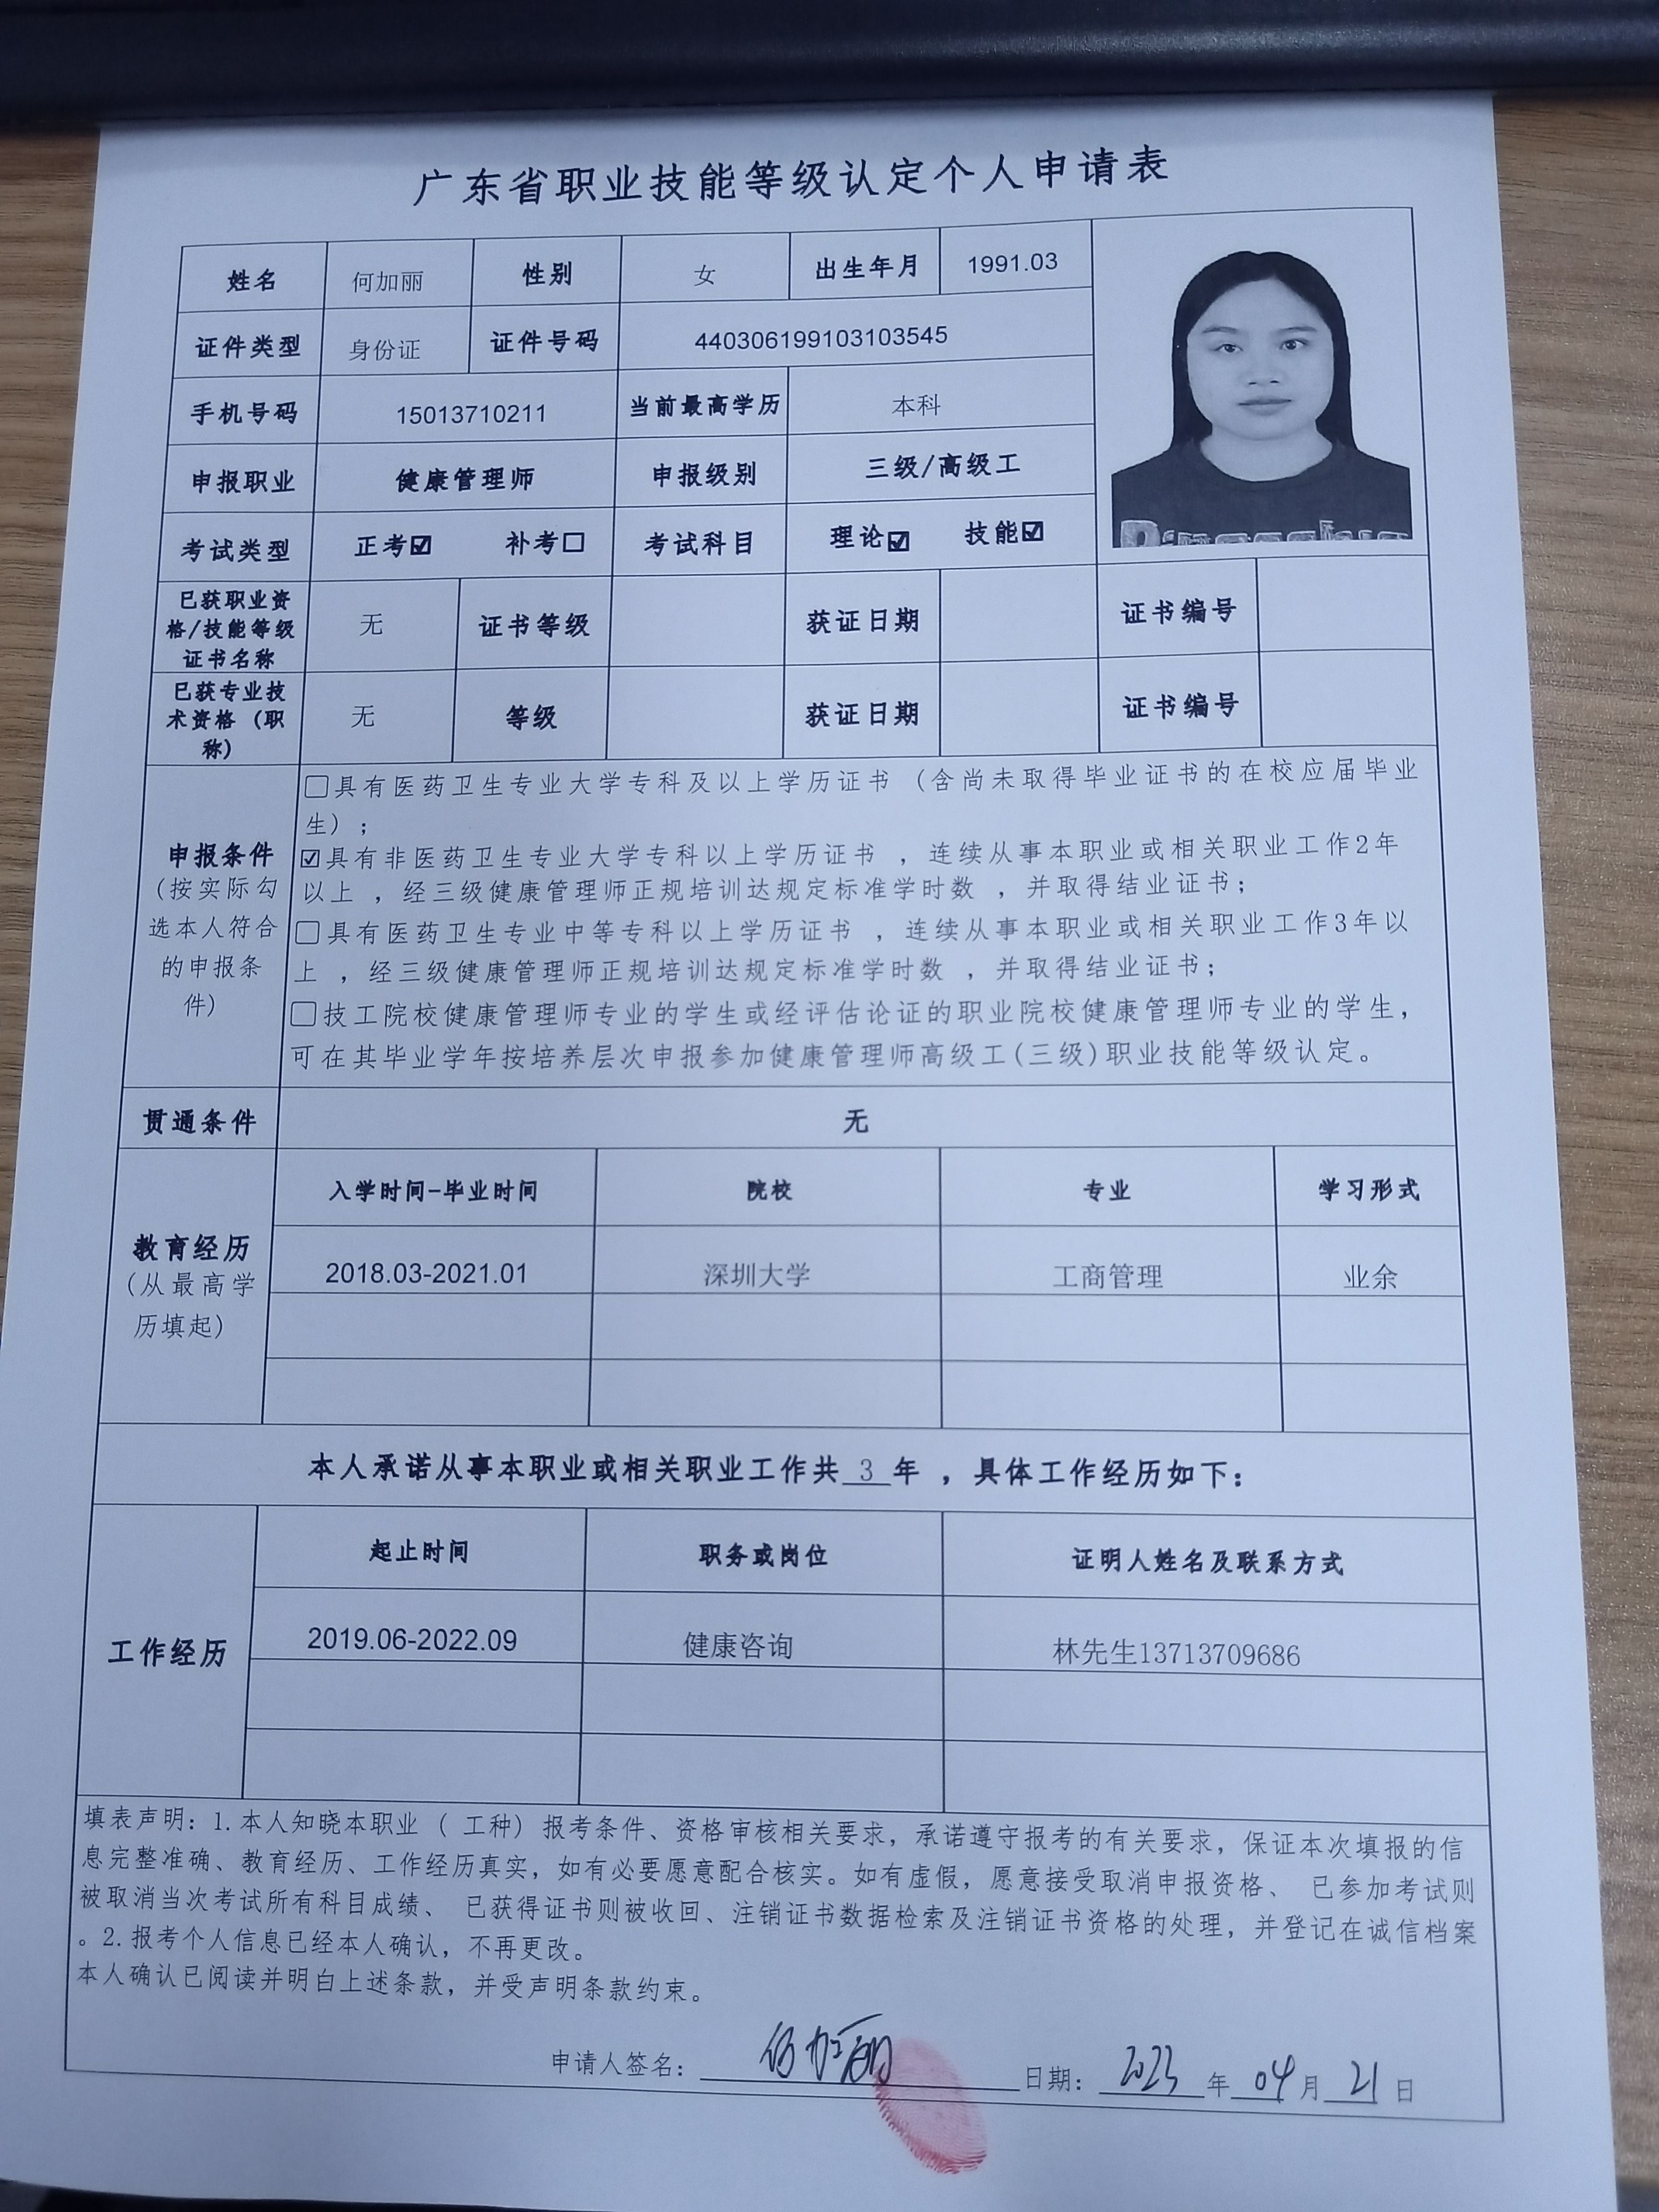 广东省职业技能等级认定个人申请表
姓名 何加丽 性别 女 出生年月 1991.03
证件类型 身份证 证件号码 440306199103103545
手机号码 15013710211 当前最高学历 本科
申报职业 健康管理师 申报级别 三级/高级工
考试类型 正考☑ 补考☐ 考试科目 理论☑ 技能☑
已获职业资
格/技能等级
证书名称
无 证书等级 获证日期 证书编号
已获专业技
术资格（职
称）
无 等级 获证日期 证书编号
申报条件
（按实际勾
选本人符合
的申报条
件）
☐具有医药卫生专业大学专科及以上学历证书（含尚未取得毕业证书的在校应届毕业
生）；
☑具有非医药卫生专业大学专科以上学历证书，连续从事本职业或相关职业工作2年
以上，经三级健康管理师正规培训达规定标准学时数，并取得结业证书；
☐具有医药卫生专业中等专科以上学历证书，连续从事本职业或相关职业工作3年以
上，经三级健康管理师正规培训达规定标准学时数，并取得结业证书；
☐技工院校健康管理师专业的学生或经评估论证的职业院校健康管理师专业的学生，
可在其毕业学年按培养层次申报参加健康管理师高级工(三级)职业技能等级认定。
贯通条件 无
教育经历
（从最高学
历填起）
入学时间-毕业时间 院校 专业 学习形式
2018.03-2021.01 深圳大学 工商管理 业余
本人承诺从事本职业或相关职业工作共 3 年，具体工作经历如下：
工作经历
起止时间 职务或岗位 证明人姓名及联系方式
2019.06-2022.09 健康咨询 林先生13713709686
填表声明：1.本人知晓本职业（ 工种）报考条件、资格审核相关要求，承诺遵守报考的有关要求，保证本次填报的信
息完整准确、教育经历、工作经历真实，如有必要愿意配合核实。如有虚假，愿意接受取消申报资格、 已参加考试则
被取消当次考试所有科目成绩、 已获得证书则被收回、注销证书数据检索及注销证书资格的处理，并登记在诚信档案
。2.报考个人信息已经本人确认，不再更改。
本人确认已阅读并明白上述条款，并受声明条款约束。
申请人签名： 何加丽 日期： 2023 年 04 月 21 日